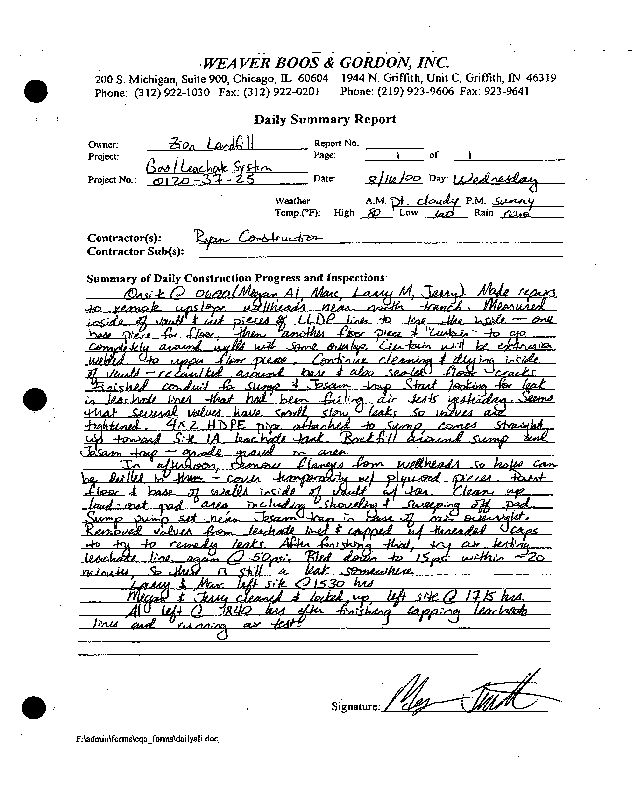 WEAVER BOOS & GORDON, INC.
200 S. Michigan, Suite 900, Chicago, IL 60604 1944 N. Griffith, Unit C, Griffith, IN 46319
Phone: (312) 922-1030 Fax: (312) 922-0201 Phone: (219) 923-9606 Fax: 923-9641
Daily Summary Report
Owner: Zion Landfill Report No.
Project: Gas/Leachate System Page: 1 of 1
Project No.: 0120-37-25 Date: 8/16/00 Day: Wednesday
Weather A.M. Pt. cloudy P.M. Sunny
Temp.(°F): High 80 Low Rain none
Contractor(s): Ryan Construction
Contractor Sub(s):
Summary of Daily Construction Progress and Inspections:
Onsite @ 0600 (Megan, Al, Marc, Larry M, Jerry). Made repairs
to upslope wellheads near north trench. Measured
inside of vault & cut pieces of LLDP liner to line the inside - one
base piece for floor, then another floor piece & "curtain" to go
completely around walls with some overlap. Curtain will be extrusion
welded to upper floor piece. Continue cleaning & drying inside
of vault - recaulked around base & also sealed floor cracks.
Finished conduit for sump & Josam trap. Start looking for leak
in leachate lines that had been failing air tests yesterday. Seems
that several valves have small, slow leaks so valves are
tightened. 4x2 HDPE pipe attached to sump, comes straight
up toward Site 1A leachate tank. Backfill around sump and
Josam trap - grade gravel in area.
In afternoon, remove flanges from wellheads so holes can
be drilled in them - cover temporarily w/ plywood pieces. Paint
floor & base of walls inside of vault w/ tar. Clean up
load-out pad area including shoveling & sweeping off pad.
Sump pump set near Josam trap in case of rain overnight.
Removed valves from leachate line & capped w/ threaded caps
to try to remedy leaks. After finishing that, try air testing
leachate line again @ 50 psi. Bled down to 15 psi within ~20
minutes, so there is still a leak somewhere.
Larry & Marc left site @ 1530 hrs
Megan & Jerry cleaned & locked up, left site @ 1715 hrs.
Al left @ 1840 hrs after finishing capping leachate
lines and running air test.
Signature:
F:\admin\forms\cqa_forms\dailyall.doc